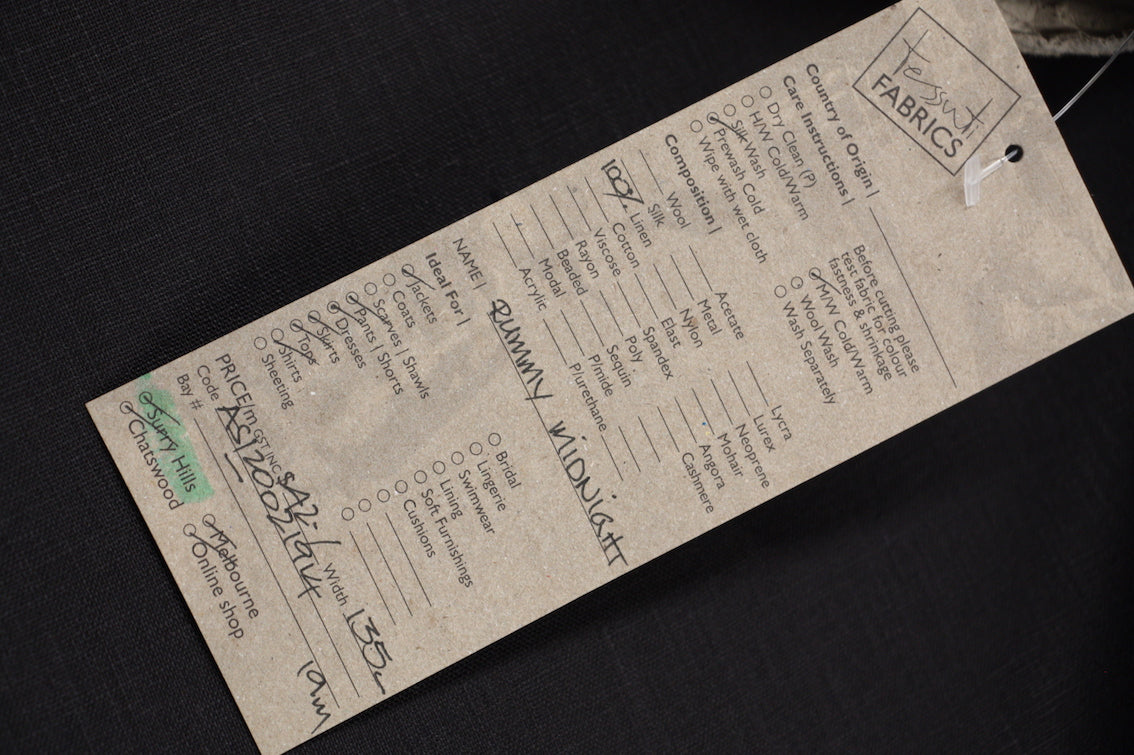 tessuti
FABRICS
Country of Origin |
Care Instructions |
Dry Clean (P)
H/W Cold/Warm
Silk Wash
Prewash Cold
Wipe with wet cloth
Before cutting please
test fabric for colour
fastness & shrinkage
M/W Cold/Warm
Wool Wash
Wash Separately
Composition |
Wool
Silk
100% Linen
Cotton
Viscose
Rayon
Beaded
Modal
Acrylic
Acetate
Metal
Nylon
Elast
Spandex
Poly
Sequin
P/mide
P/urethane
Lycra
Lurex
Neoprene
Mohair
Angora
Cashmere
NAME | RUMMY MIDNIGHT
Ideal For |
Jackets
Coats
Scarves | Shawls
Pants | Shorts
Dresses
Skirts
Tops
Shirts
Sheeting
Bridal
Lingerie
Swimwear
Lining
Soft Furnishings
Cushions
PRICE/m GST INC $42.- Width 135c
Code AS120021914
Bay #
Surry Hills
Chatswood
Melbourne
Online shop